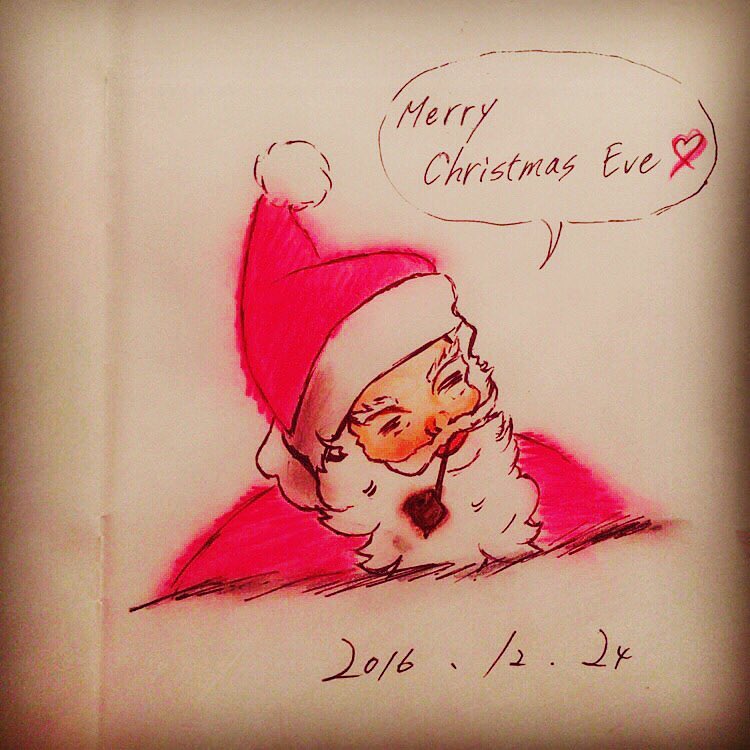 Merry
Christmas Eve♡
2016.12.24